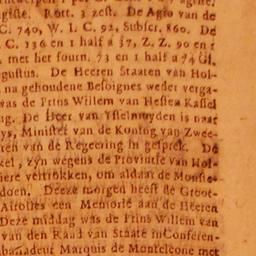 ngste. Rott. 3 zest. De Agio van de
C. 740, W. I. C. 92, Subscr. 860. De
C. 136 en 1 half a 37, Z. Z. 90 en 1
, met het fourn. 73 en 1 half a 74 Gl.
gustus. De Heeren Staaten van Hol-
na gehoudene Besoignes weder verga-
was de Prins Willem van Hessen Kassel
ng. De Heer van Ysselmuyden is naar
ys, Minister van de Koning van Zwee-
ren van de Regeering in gesprek. De
kel, zyn wegens de Provintie van Hol-
niere vertrokken, om aldaar de Monste-
doen. Deeze morgen heeft de Groot-
Airolles een Memorie aan de Heeren
Deze middag was de Prins Willem van
van den Raad van Staate in Conferen-
bassadeur Marquis de Monteleone met